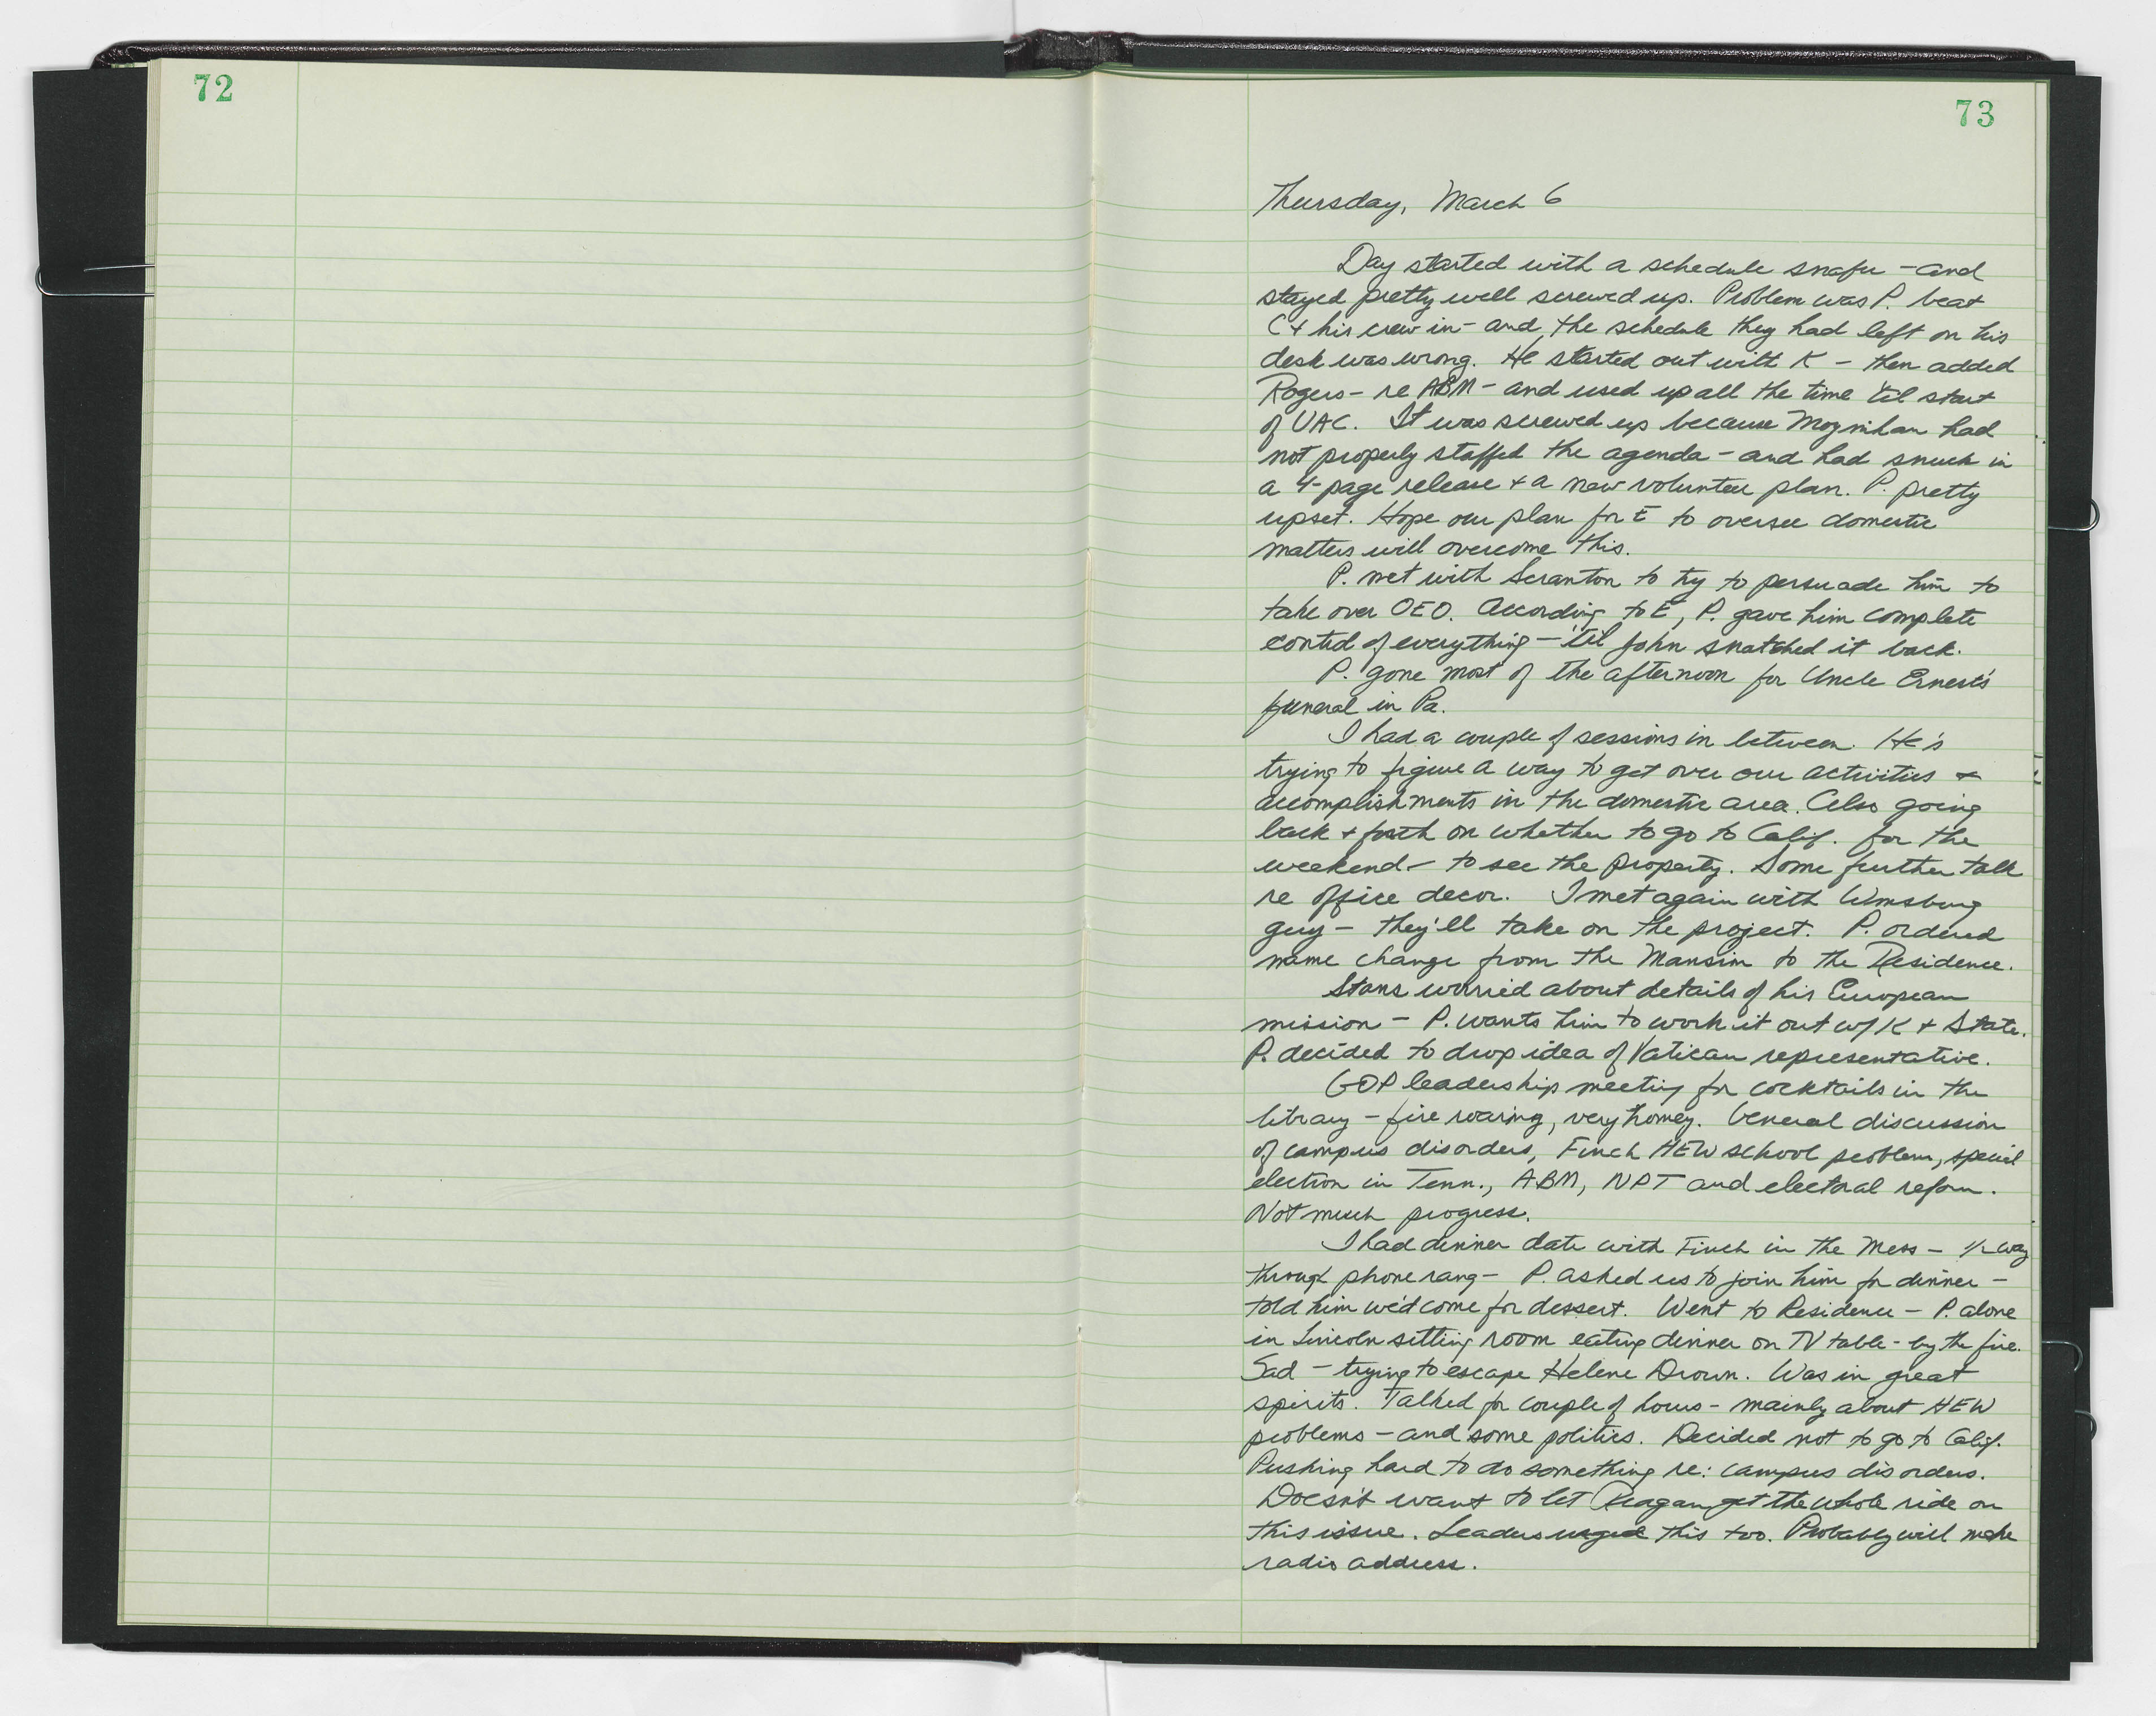 72
73
Thursday, March 6
Day started with a schedule snafu – and
stayed pretty well screwed up. Problem was P. beat
C + his crew in – and the schedule they had left on his
desk was wrong. He started out with K – then added
Rogers – re ABM – and used up all the time 'til start
of UAC. It was screwed up because Moynihan had
not properly staffed the agenda – and had snuck in
a 4-page release + a new volunteer plan. P. pretty
upset. Hope our plan for E to oversee domestic
matters will overcome this.
P. met with Scranton to try to persuade him to
take over OEO. According to E, P. gave him complete
control of everything – 'til John snatched it back.
P. gone most of the afternoon for Uncle Ernest's
funeral in Pa.
I had a couple of sessions in between. He's
trying to figure a way to get over our activities +
accomplishments in the domestic area. Also going
back + forth on whether to go to Calif. for the
weekend – to see the property. Some further talk
re office decor. I met again with Wmsburg
guy – they'll take on the project. P. ordered
name change from the Mansion to the Residence.
Stans worried about details of his European
mission – P. wants him to work it out w/ K + State.
P. decided to drop idea of Vatican representative.
GOP leadership meeting for cocktails in the
library – fire roaring, very homey. General discussion
of campus disorders, Finch HEW school problem, special
election in Tenn., ABM, NPT and electoral reform.
Not much progress.
I had dinner date with Finch in the Mess – 1/2 way
through phone rang – P. asked us to join him for dinner –
told him we'd come for dessert. Went to Residence – P. alone
in Lincoln sitting room eating dinner on TV table – by the fire.
Sad – trying to escape Helene Drown. Was in great
spirits. Talked for couple of hours – mainly about HEW
problems – and some politics. Decided not to go to Calif.
Pushing hard to do something re: campus disorders.
Doesn't want to let Reagan get the whole ride on
this issue. Leaders urged this too. Probably will make
radio address.